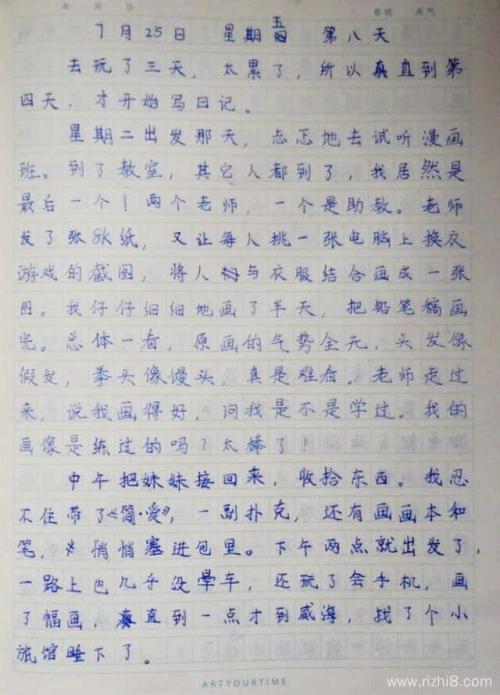 7月25日 星期五 第八天
去玩了三天，太累了，所以直到第
四天，才开始写日记。
星期二出发那天，忐忑地去试听漫画
班。到了教室，其它人都到了，我居然是
最后一个！两个老师，一个是助教。老师
发了张8K纸，又让每人挑一张电脑上换衣
游戏的截图，将人与衣服结合画成一张
图。我仔仔细细地画了半天，把铅笔稿画
完。总体一看，原画的气势全无，头发像
假发，拳头像馒头，真是难看。老师走过
来，说我画得好，问我是不是学过。我的
画像是练过的吗？太棒了！
中午把妹妹接回来，收拾东西。我忍
不住带了《简·爱》，一副扑克，还有画画本和
笔，悄悄塞进包里。下午两点就出发了，
一路上也几乎没晕车，还玩了会手机，画
了幅画，直到一点才到威海，找了个小
旅馆睡下了。
ARTYOURTIME
www.rizhi8.com